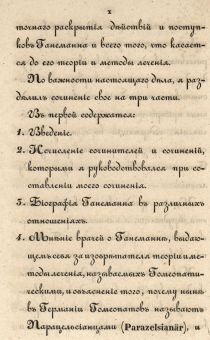 x
точнаго раскрытія дѣйствій и поступ-
ковъ Ганеманна и всего того, что касает-
ся до его теоріи и методы леченія.
По важности настоящаго дѣла, я раз-
дѣлилъ сочиненіе свое на три части.
Въ первой содержатся:
1. Введеніе.
2. Исчисленіе сочинителей и сочиненій,
которыми я руководствовался при со-
ставленіи моего сочиненія.
3. Біографія Ганеманна въ различныхъ
отношеніяхъ.
4. Мнѣніе врачей о Ганеманнѣ, выдаю-
щемъ себя за изобрѣтателя теоріи и ме-
тоды леченія, называемыхъ Гомеопати-
ческими, и объясненіе того, почему нынѣ
въ Германіи Гомеопатовъ называютъ
Парацельсіанцами (Parazelsianär), и